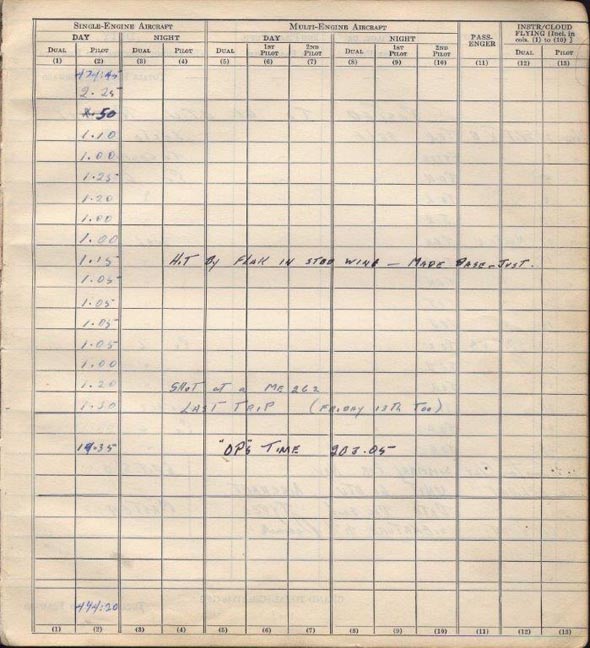 SINGLE-ENGINE AIRCRAFT MULTI-ENGINE AIRCRAFT PASS-ENGER INSTR/CLOUD FLYING [Incl. in cols. (1) to (10)]
DAY NIGHT DAY NIGHT
DUAL PILOT DUAL PILOT DUAL 1ST PILOT 2ND PILOT DUAL 1ST PILOT 2ND PILOT DUAL PILOT
(1) (2) (3) (4) (5) (6) (7) (8) (9) (10) (11) (12) (13)
424:45
2.25
.50
1.10
1.00
1.25
1.20
1.00
1.00
1.15 HIT BY FLAK IN STBD WING — MADE BASE - JUST.
1.05
1.05
1.05
1.05
1.00
1.20 SHOT at a ME 262
1.30 LAST TRIP (FRIDAY 13TH TOO)
19.35 "OP'S TIME 203.05
444:20
(1) (2) (3) (4) (5) (6) (7) (8) (9) (10) (11) (12) (13)